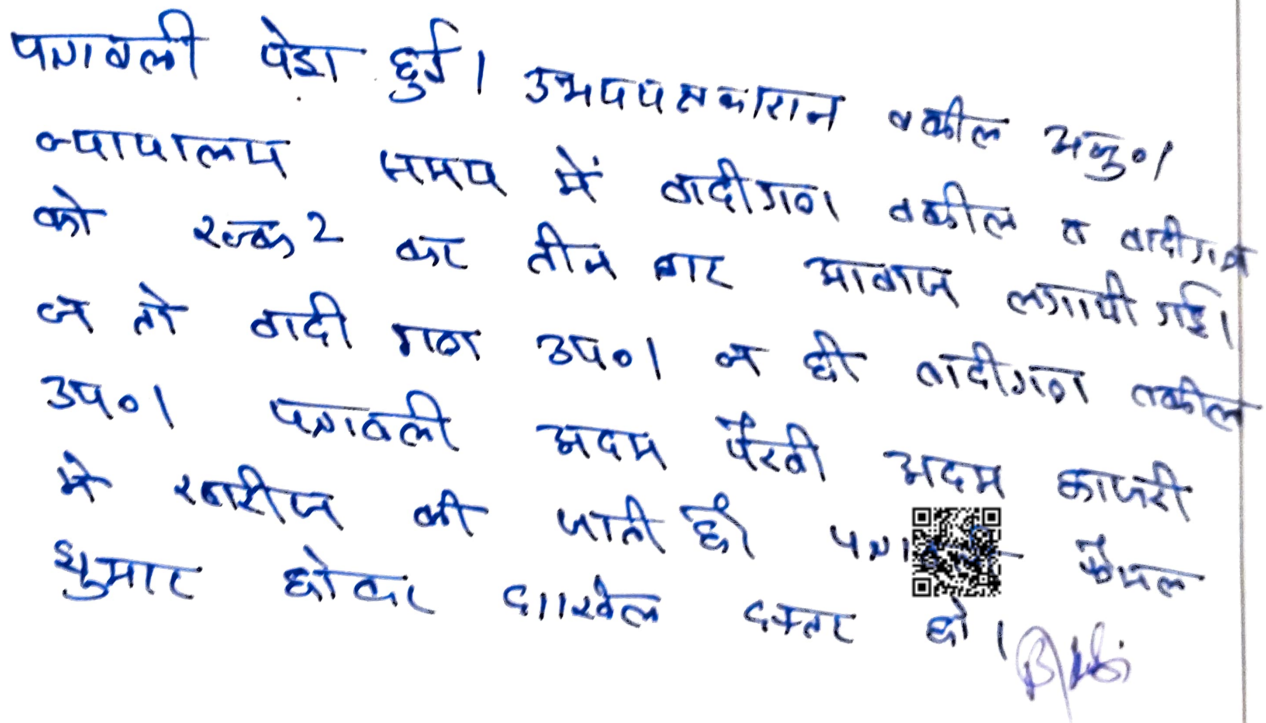 पत्रावली पेश हुई। उभयपक्षकारान वकील अनु०।
न्यायालय समय में वादीगण वकील व वादीगण
को रूक 2 कर तीन बार आवाज लगायी गई।
न तो वादी गण उप०। न ही वादीगण वकील
उप०। पत्रावली अदम पैरवी अदम हाजरी
में खारीज की जाती है। फैसल
शुमार होकर दाखिल दफ्तर हो।